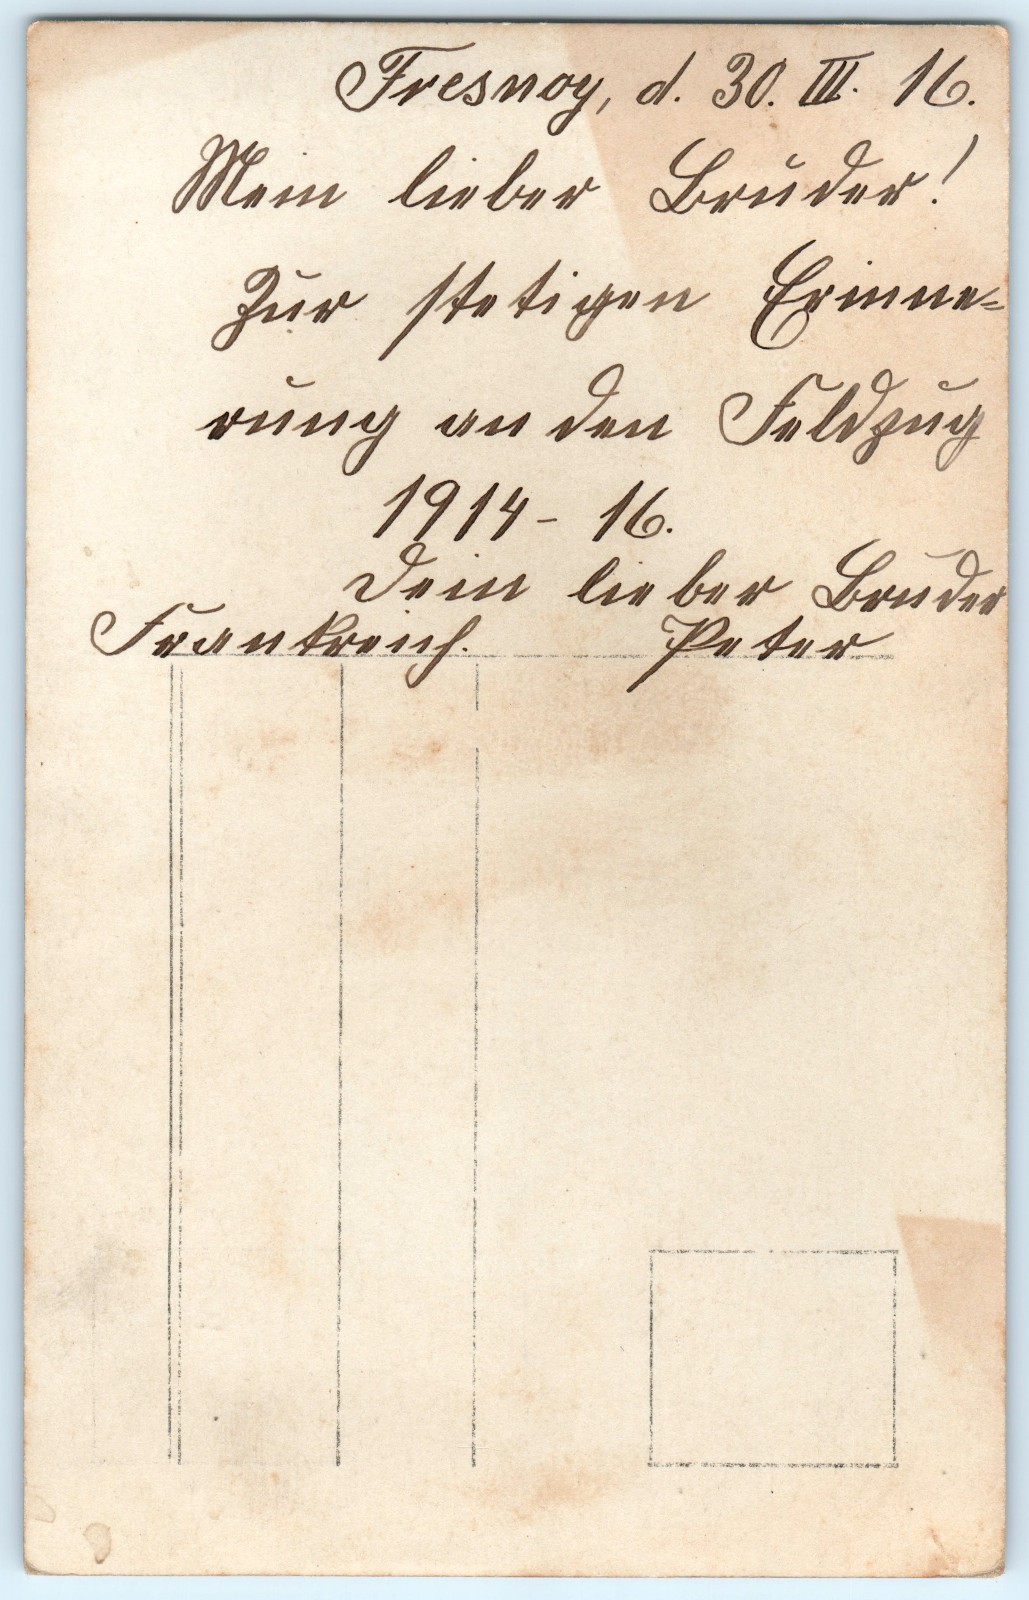 Fresnoy, d. 30. III. 16.
Mein lieber Bruder!
Zur stetigen Erinne-
rung an den Feldzug
1914 - 16.
Dein lieber Bruder
Frankreich. Peter